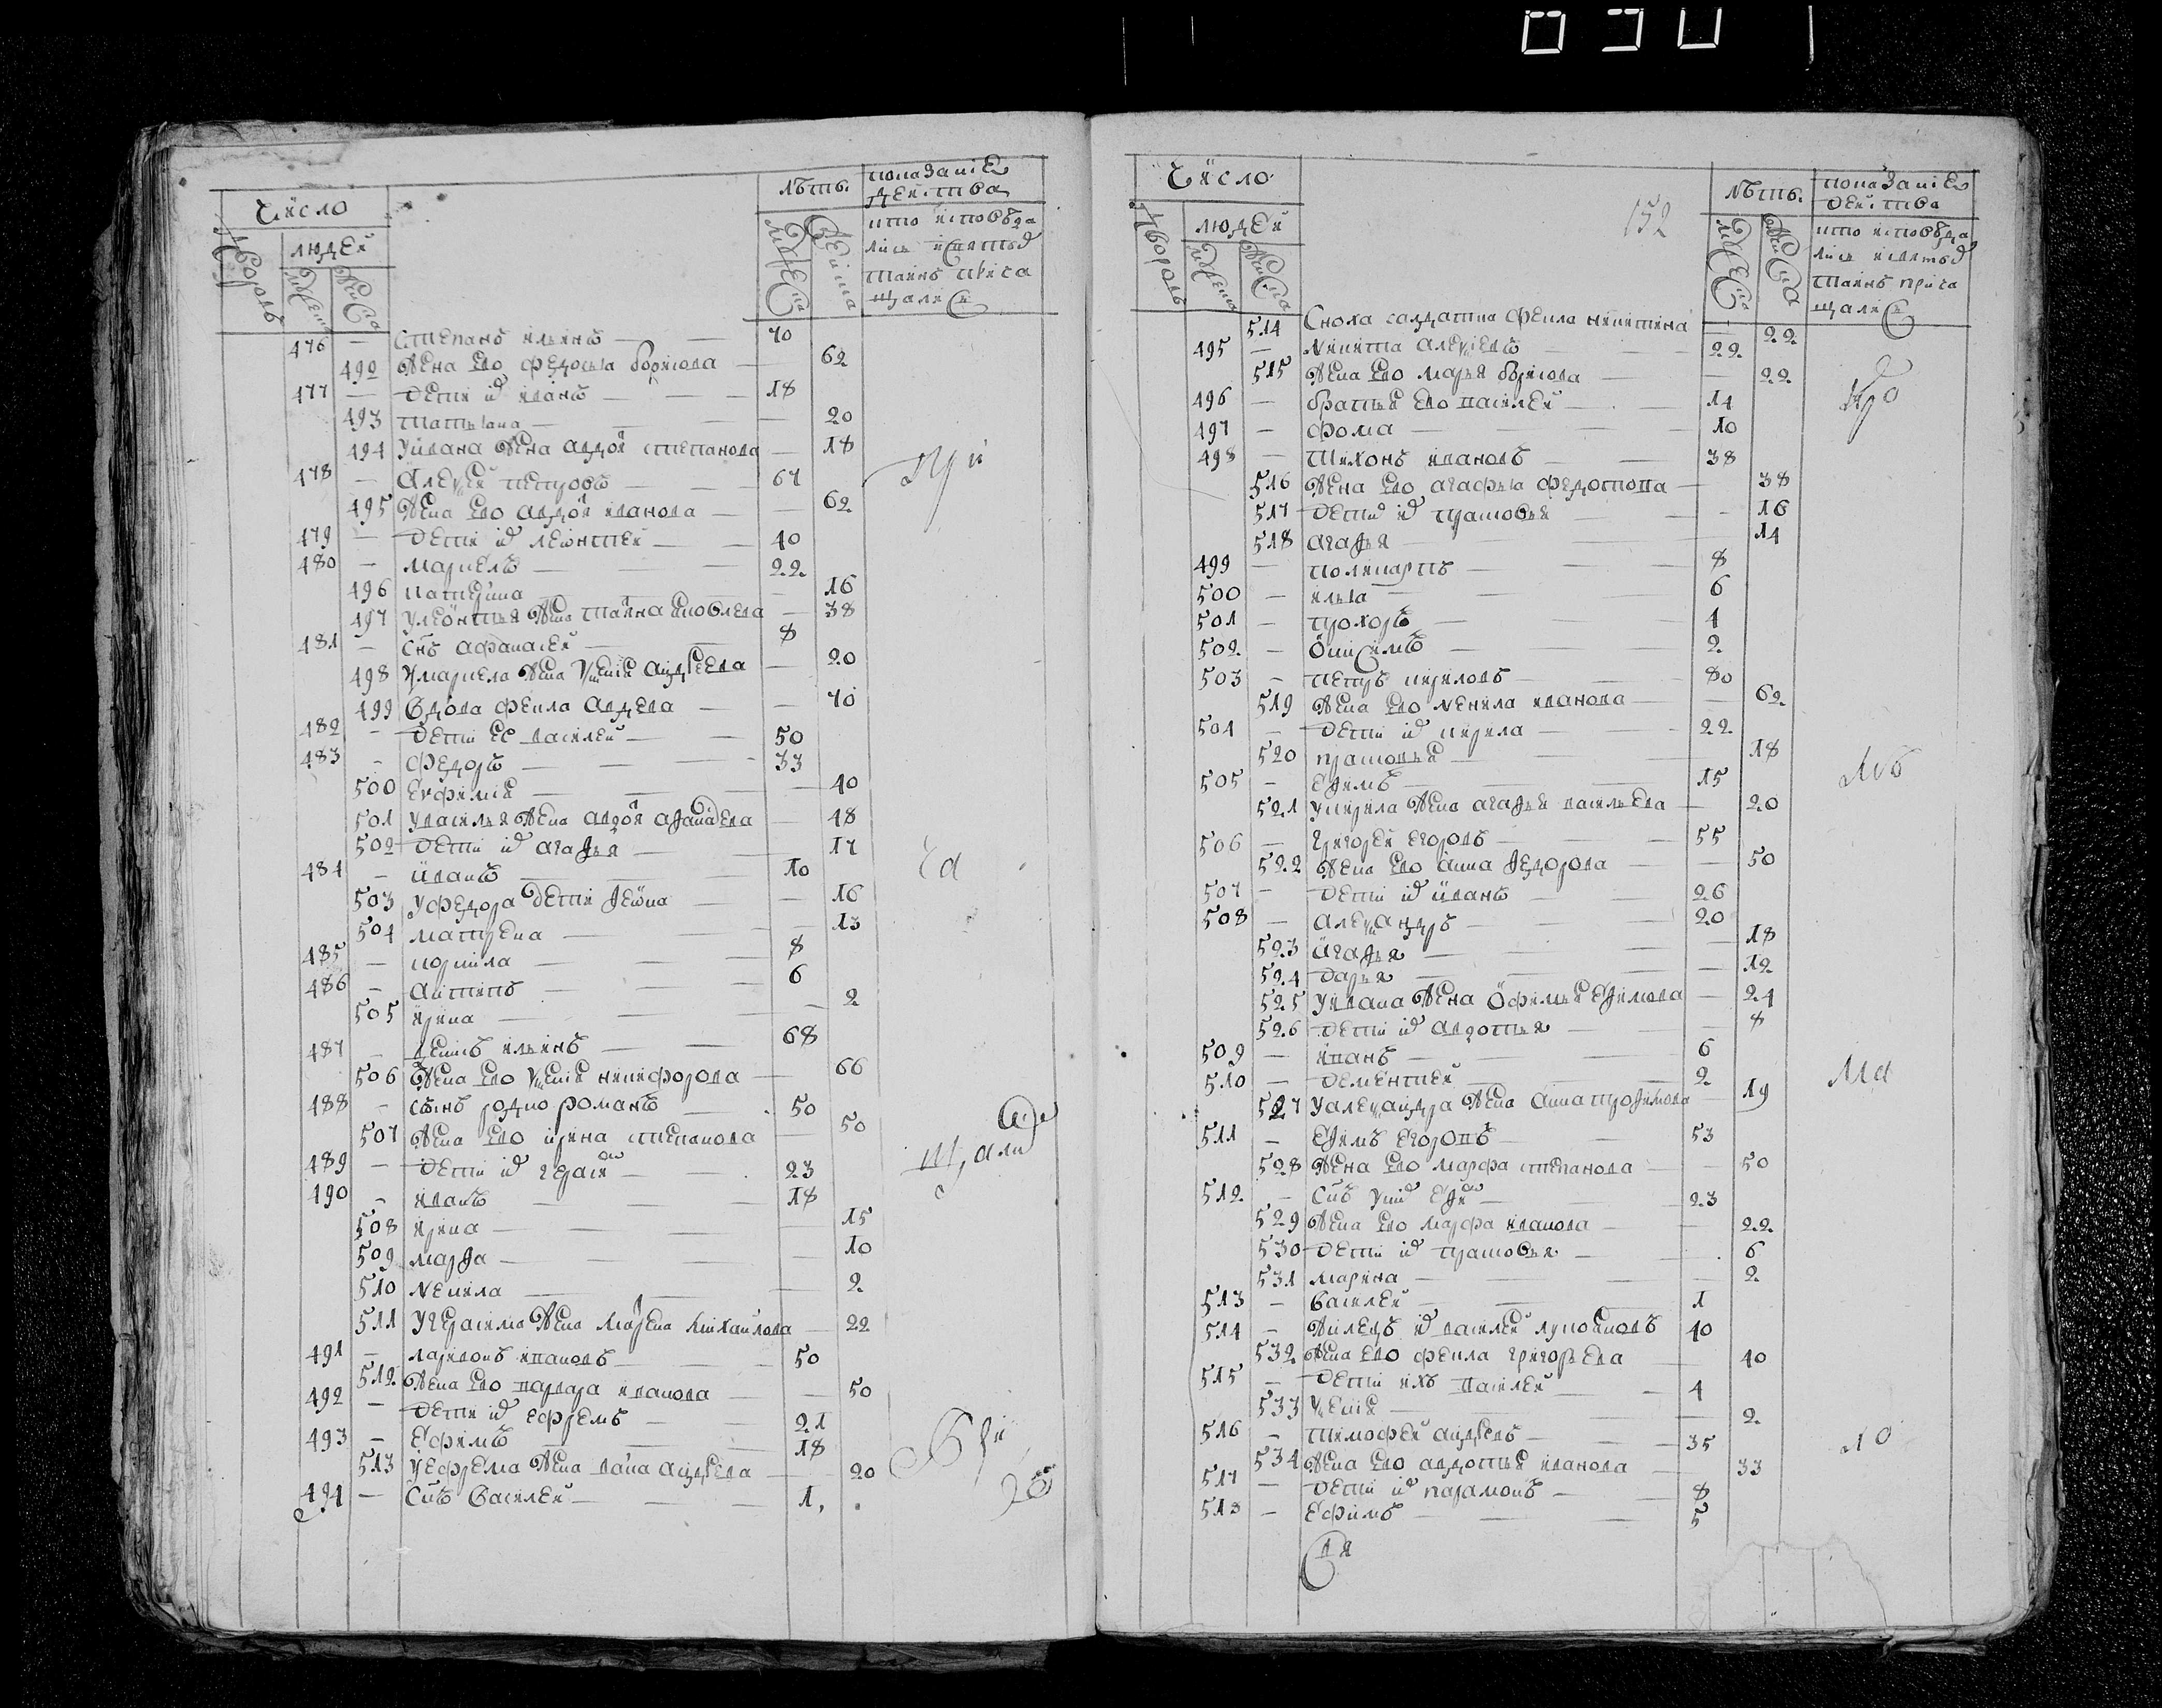 Число
людей
лѣтъ.
показаніе
действа
кто исповѣда
лись и святыхъ
таинъ приоа
щались
476 — Степанъ ильинъ — 70
492 Жена ево федосья борисова — 62
477 — дети ихъ иванъ — 18
493 татьяна — 20
494 у ивана жена авдотья степанова — 18
478 — Алексей петровъ — 67
495 Жена ево авдотья иванова — 62
479 — дети ихъ леонтей — 40
480 — маркелъ — 22
496 катерина — 16
497 у леонтья жена татiана яковлева — 38
481 — снъ афанасей — 8
498 у маркела жена ксения андреева — 20
499 вдова фекла авдеева — 70
482 — дети ее василей — 50
483 — федоръ — 33
500 евфимия — 40
501 у василья жена авдотья афанасева — 48
502 дети ихъ агафья — 17
484 — иванъ — 10
503 у федора дети фекла — 16
504 матрена — 13
485 — корнила — 8
486 — антипъ — 6
505 ирина — 2
487 — денисъ ильинъ — 68
506 Жена ево ксения никифорова — 66
488 — сынъ родно романъ — 50
507 Жена ево ирина степанова — 50
489 — дети ихъ герасимъ — 23
490 — иванъ — 18
508 ирина — 15
509 марфа — 10
510 ненила — 2
511 у герасима жена марья михайлова — 22
491 — ларионъ ивановъ — 50
512 Жена ево варвара иванова — 50
492 — дети ихъ ефремъ — 21
493 — ефимъ — 18
513 у ефрема жена анна андреева — 20
494 — снъ василей — 1
152
Число
людей
лѣтъ.
показаніе
действа
кто исповѣда
лись и святыхъ
таинъ прича
щались
514 Сноха салдатка фекла никитина — 22
495 — никита алексеевъ — 22
515 Жена ево марья борисова — 22
496 — братья ево василей — 14
497 — фома — 10
498 — тихонъ ивановъ — 38
516 Жена ево агафья федотова — 38
517 дети ихъ прасковья — 16
518 агафья — 14
499 — поликарпъ — 8
500 — илья — 6
501 — прохоръ — 4
502 — онисимъ — 2
503 — петръ кириловъ — 80
519 Жена ево ненила иванова — 62
504 — дети ихъ кирила — 22
520 прасковья — 18
505 — ефимъ — 15
521 у кирила жена агафья васильева — 20
506 — григорей егоровъ — 55
522 Жена ево анна федорова — 50
507 — дети ихъ иванъ — 26
508 — александръ — 20
523 агафья — 18
524 дарья — 12
525 у ивана жена офимья ефимова — 24
526 дети ихъ авдотья — 8
509 — иванъ — 6
510 — дементей — 2
527 у александра жена анна трофимова — 19
511 — ефимъ егоровъ — 53
528 Жена ево марфа степанова — 50
512 — снъ у нихъ ефимъ — 23
529 Жена ево марфа иванова — 22
530 дети ихъ прасковья — 6
531 марина — 2
513 — василей — 1
514 — Жилецъ ихъ василей лукояновъ 40
532 Жена ево фекла григорьева — 40
515 — дети ихъ василей — 4
533 ксения — 2
516 — тимофей андреевъ — 35
534 Жена ево авдотья иванова — 33
517 — дети ихъ парамонъ — 8
518 — ефимъ — 5